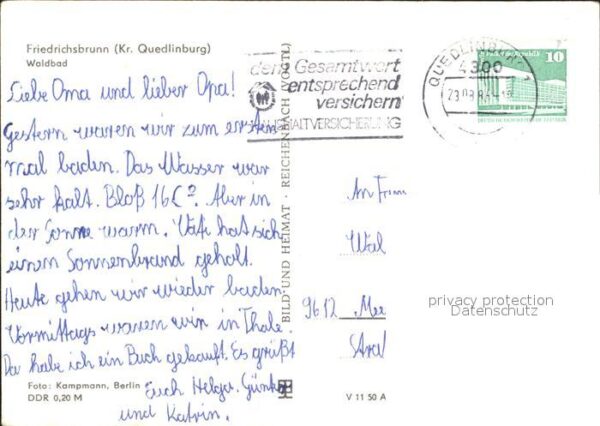 Friedrichsbrunn (Kr. Quedlinburg)
Waldbad
Liebe Oma und lieber Opa!
Gestern waren wir zum ersten
mal baden. Das Wasser war
sehr kalt. Bloß 16C°. Aber in
der Sonne warm. Vati hat sich
einen Sonnenbrand geholt.
Heute gehen wir wieder baden.
Vormittags waren wir in Thale.
Da habe ich ein Buch gekauft. Es grüßt
Euch Helga, Günter
und Katrin.
Foto: Kampmann, Berlin
DDR 0,20 M
BILD UND HEIMAT · REICHENBACH (VOGTL)
V 11 50 A
dem Gesamtwert
entsprechend
versichern
HAUSHALTVERSICHERUNG
QUEDLINBURG
4300
10
An Frau
Wal
9612 Mee
Stra
privacy protection
Datenschutz